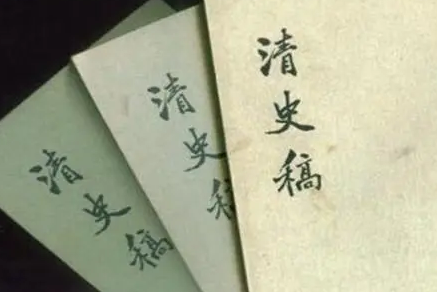 清史稿
清史稿
清史稿